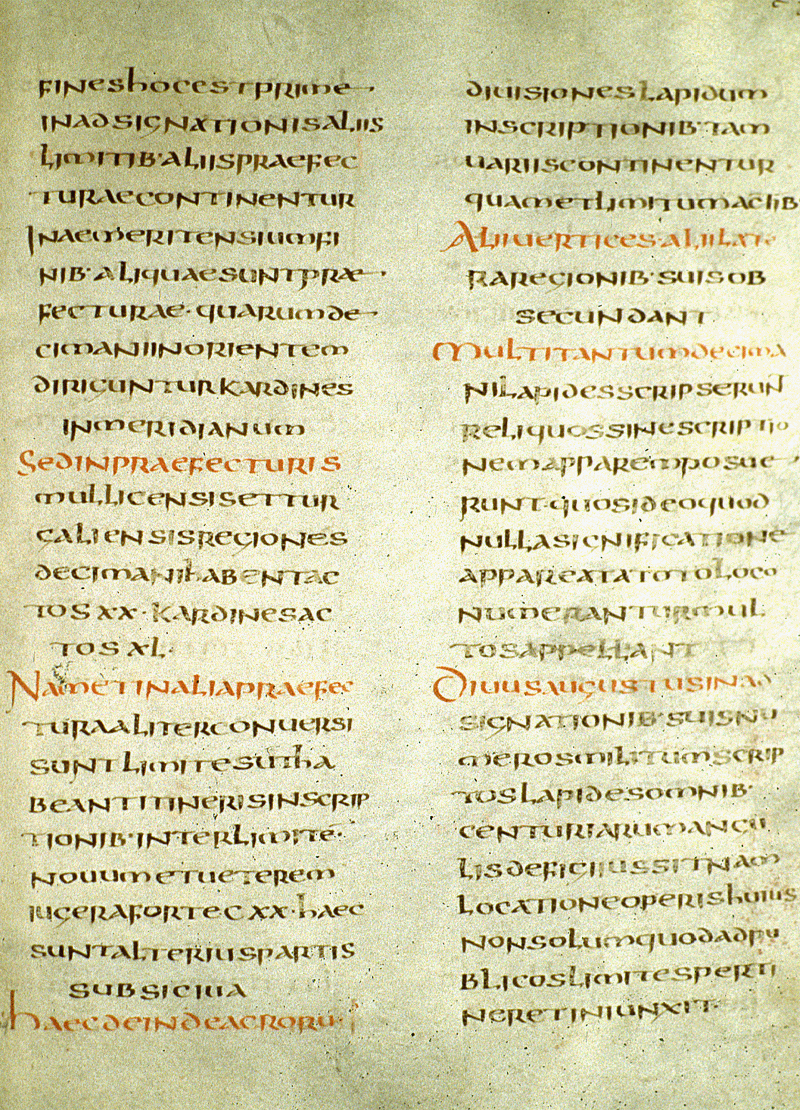 fines hoc est prime
in adsignationis aliis
limitib· aliis praefec
turae continentur
in aemeritensium fi
nib· aliquae sunt prae
fecturae· quarum de
cimani in orientem
diriguntur kardines
in meridianum
sed in praefecturis
mullicensis et tur
caliensis regiones
decimani habent ac
tos xx· kardines ac
tos xl·
nam et in alia praefec
tura aliter conuersi
sunt limites ut ha
beant itineris inscrip
tionib· inter limite·
nouum et ueterem
iugera forte cxx· haec
sunt alterius partis
subsiciua
haec deinde acroru·
diuisiones lapidum
inscriptionib· tam
uariis continentur
quam et limitum actib
alii uertices· alii late
ra regionib· suis ob
secundant
multi tantum decima
ni lapides scripserun
reliquos sine scriptio
nem apparem posue
runt· quos ideo quod
nulla significatione
appareat a toto loco
numerantur mul
tos appellant
diuus augustus in ad
signationib· suis nu
meros militum scrip
tos lapides omnib·
centuriarum angu
lis defigi iussit nam
locatione operis huius
non solum quod ad pu
blicos limites perti
neret iniunxit·